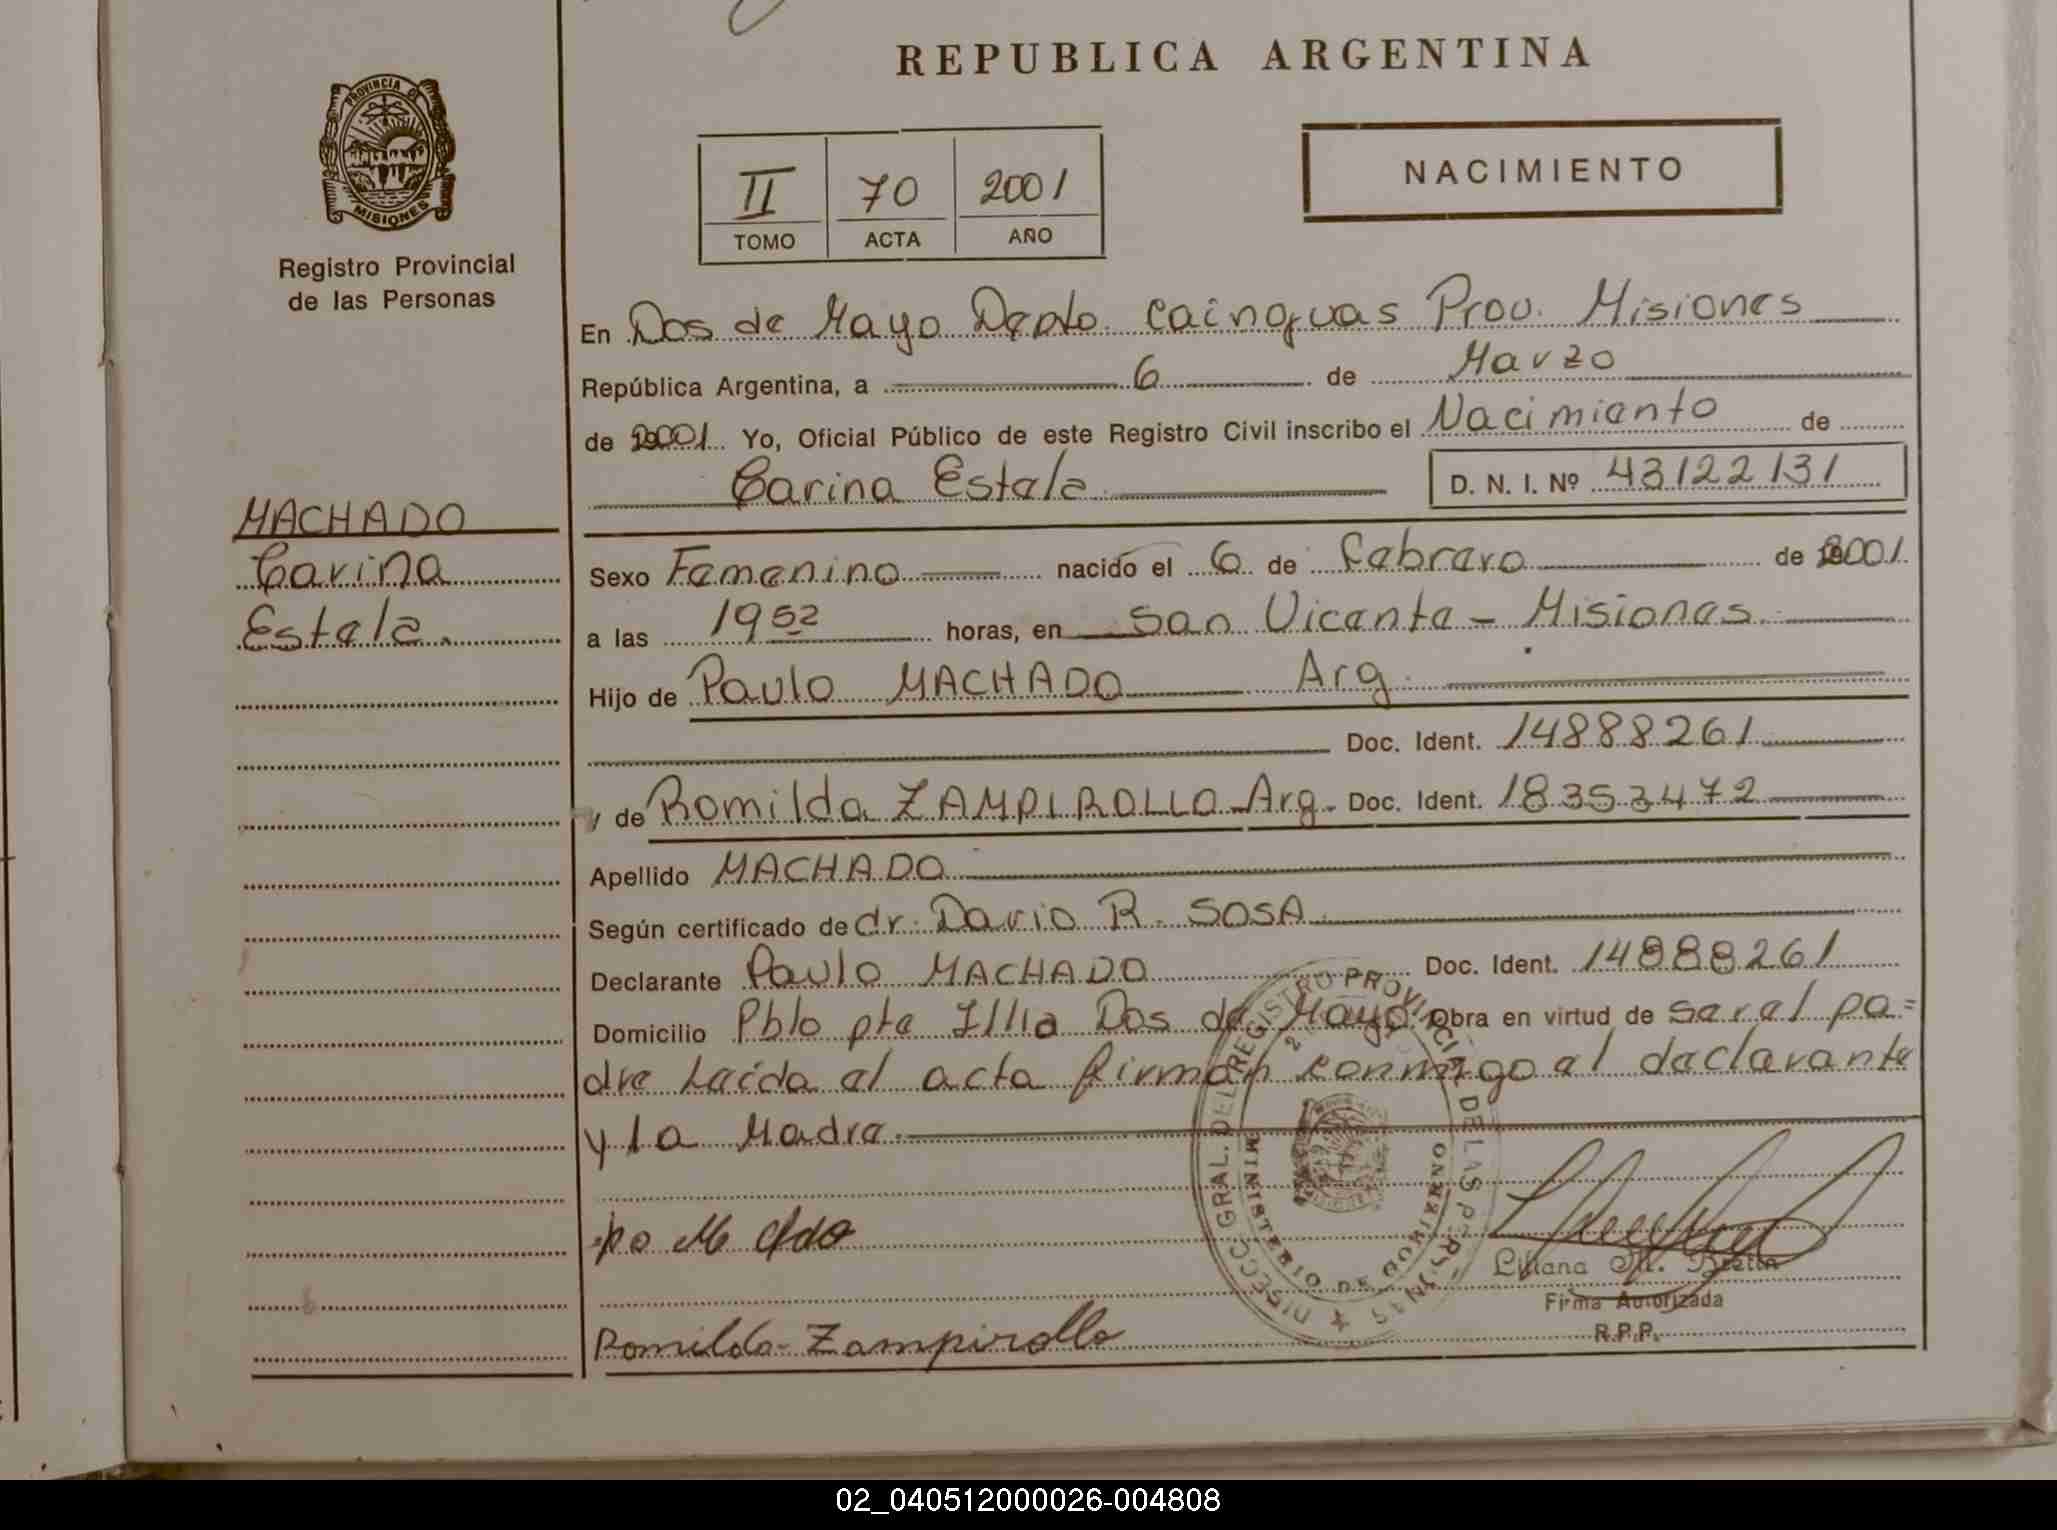 REPUBLICA ARGENTINA
PROVINCIA DE
MISIONES
Registro Provincial
de las Personas
II 70 2001
TOMO ACTA AÑO
NACIMIENTO
En Dos de Mayo Depto. Cainguas Prov. Misiones
República Argentina, a 6 de Marzo
de 2001 Yo, Oficial Público de este Registro Civil inscribo el Nacimiento de
Carina Estela D. N. I. Nº 43122131
MACHADO
Carina
Estela
Sexo Femenino nacido el 6 de Febrero de 2001
a las 19 52 horas, en San Vicente - Misiones
Hijo de Paulo MACHADO Arg.
Doc. Ident. 14888261
y de Romilda ZAMPIROLLO - Arg - Doc. Ident. 18353472
Apellido MACHADO
Según certificado de dr. Dario R. SOSA
Declarante Paulo MACHADO Doc. Ident. 14888261
Domicilio Pblo pte Illia Dos de Mayo Obra en virtud de ser el pa=
dre Leída el acta firman conmigo el declarante
y la Madre
DIRECC. GRAL. DEL REGISTRO PROVINCIAL DE LAS PERSONAS
MINISTERIO DE GOBIERNO
Romilda Zampirollo
Liliana M. Bretin
Firma Autorizada
R.P.P.
02_040512000026-004808